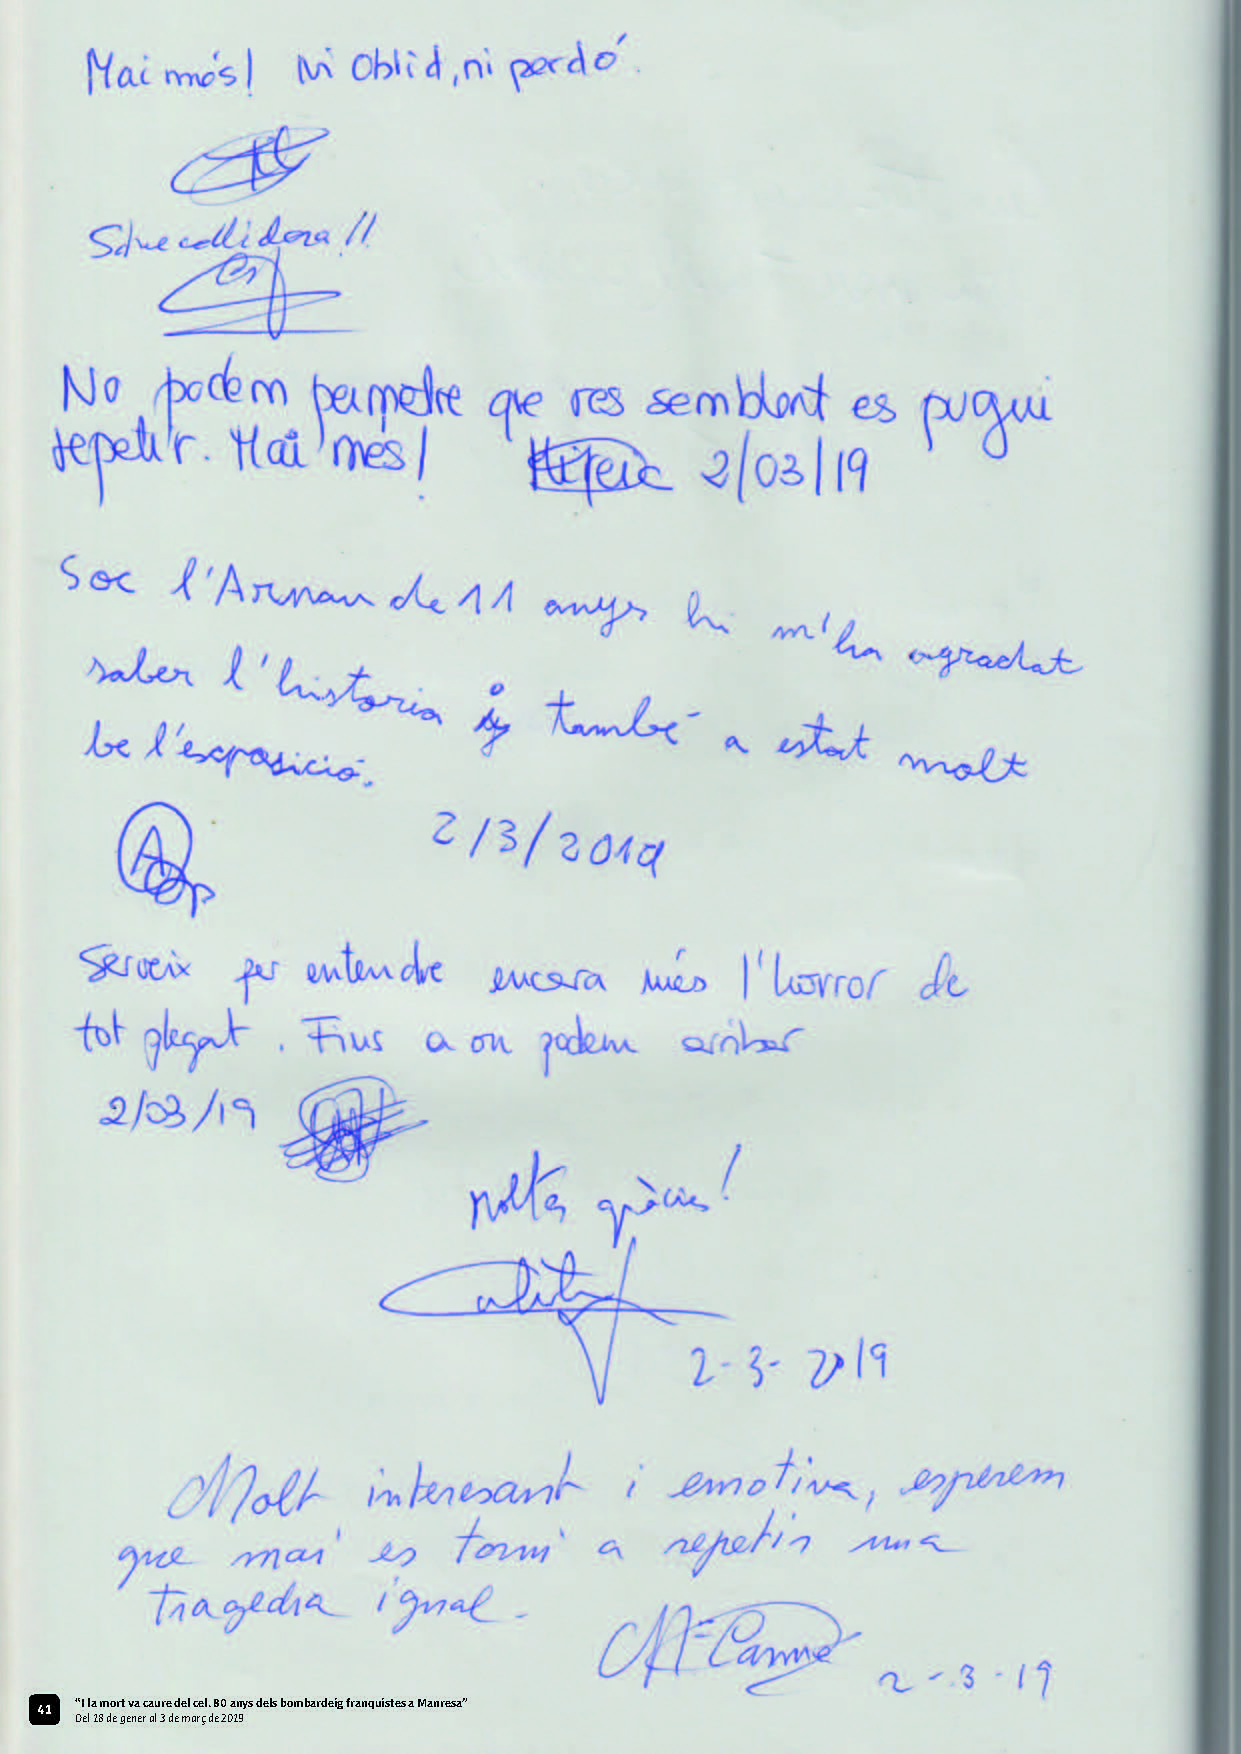 Mai més! Ni oblid, ni perdó.
No podem permetre que res semblant es pugui
repetir. Mai més! 2/03/19
Soc l'Arnau de 11 anys hi m'ha agradat
saber l'historia i també a estat molt
be l'exposició.
2/3/2019
Serveix per entendre encara més l'horror de
tot plegat. Fins a on podem arribar
2/03/19
Moltes gràcies!
2-3-2019
Molt interesant i emotiva, esperem
que mai es torni a repetir una
tragedia igual.
Mª Carme 2-3-19
41
"I la mort va caure del cel. 80 anys dels bombardeig franquistes a Manresa"
Del 18 de gener al 3 de març de 2019